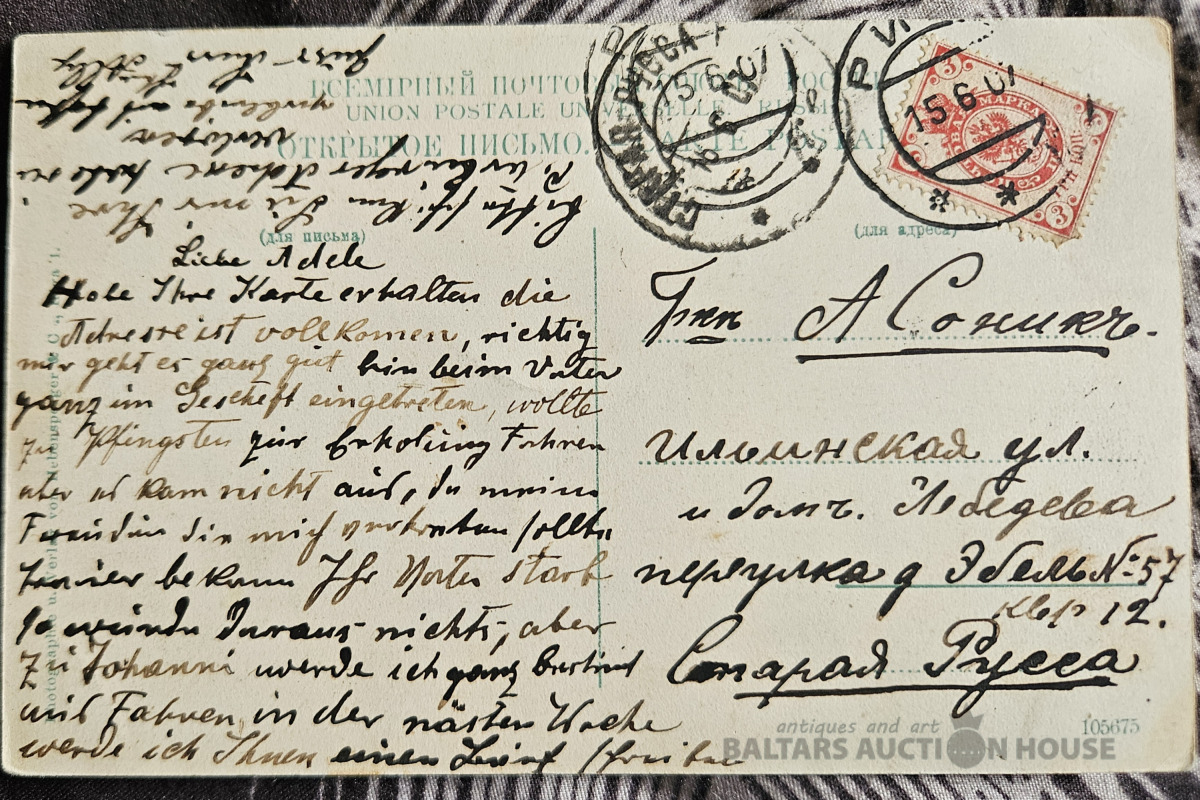 ВСЕМІРНЫЙ ПОЧТОВЫЙ СОЮЗЪ. РОССІЯ
UNION POSTALE UNIVERSELLE. RUSSIE
ОТКРЫТОЕ ПИСЬМО. CARTE POSTALE
(для письма)
(для адреса)
СТАРАЯ РУССА
16 6 07
РИГ
15 6 07
МАРКА
3
Liebe Adele
Habe Ihre Karte erhalten die
Adresse ist vollkommen, richtig
mir geht es ganz gut bin beim Vater
ganz im Gescheft eingetreten, wollte
zu Pfingsten zur Erholung Fahren
aber es kam nicht aus, da meine
Freundin die mich sollte
bekamm Ihr Vater stark
so würde Daraus nichts, aber
Zu Johanni werde ich ganz bestimt
aus Fahren in der nästen Woche
werde ich Ihnen einen Brief schreiben
Bitte schiken Sie mir Ihre
Petersburger Adresse habe sie
verloren
verbleibe mit besten
Грж А Соникъ.
Ильинская ул.
и домъ. Лебедева
переулка д Эбель №57
квр 12.
Старая Русса
105675
antiques and art
BALTARS AUCTION HOUSE